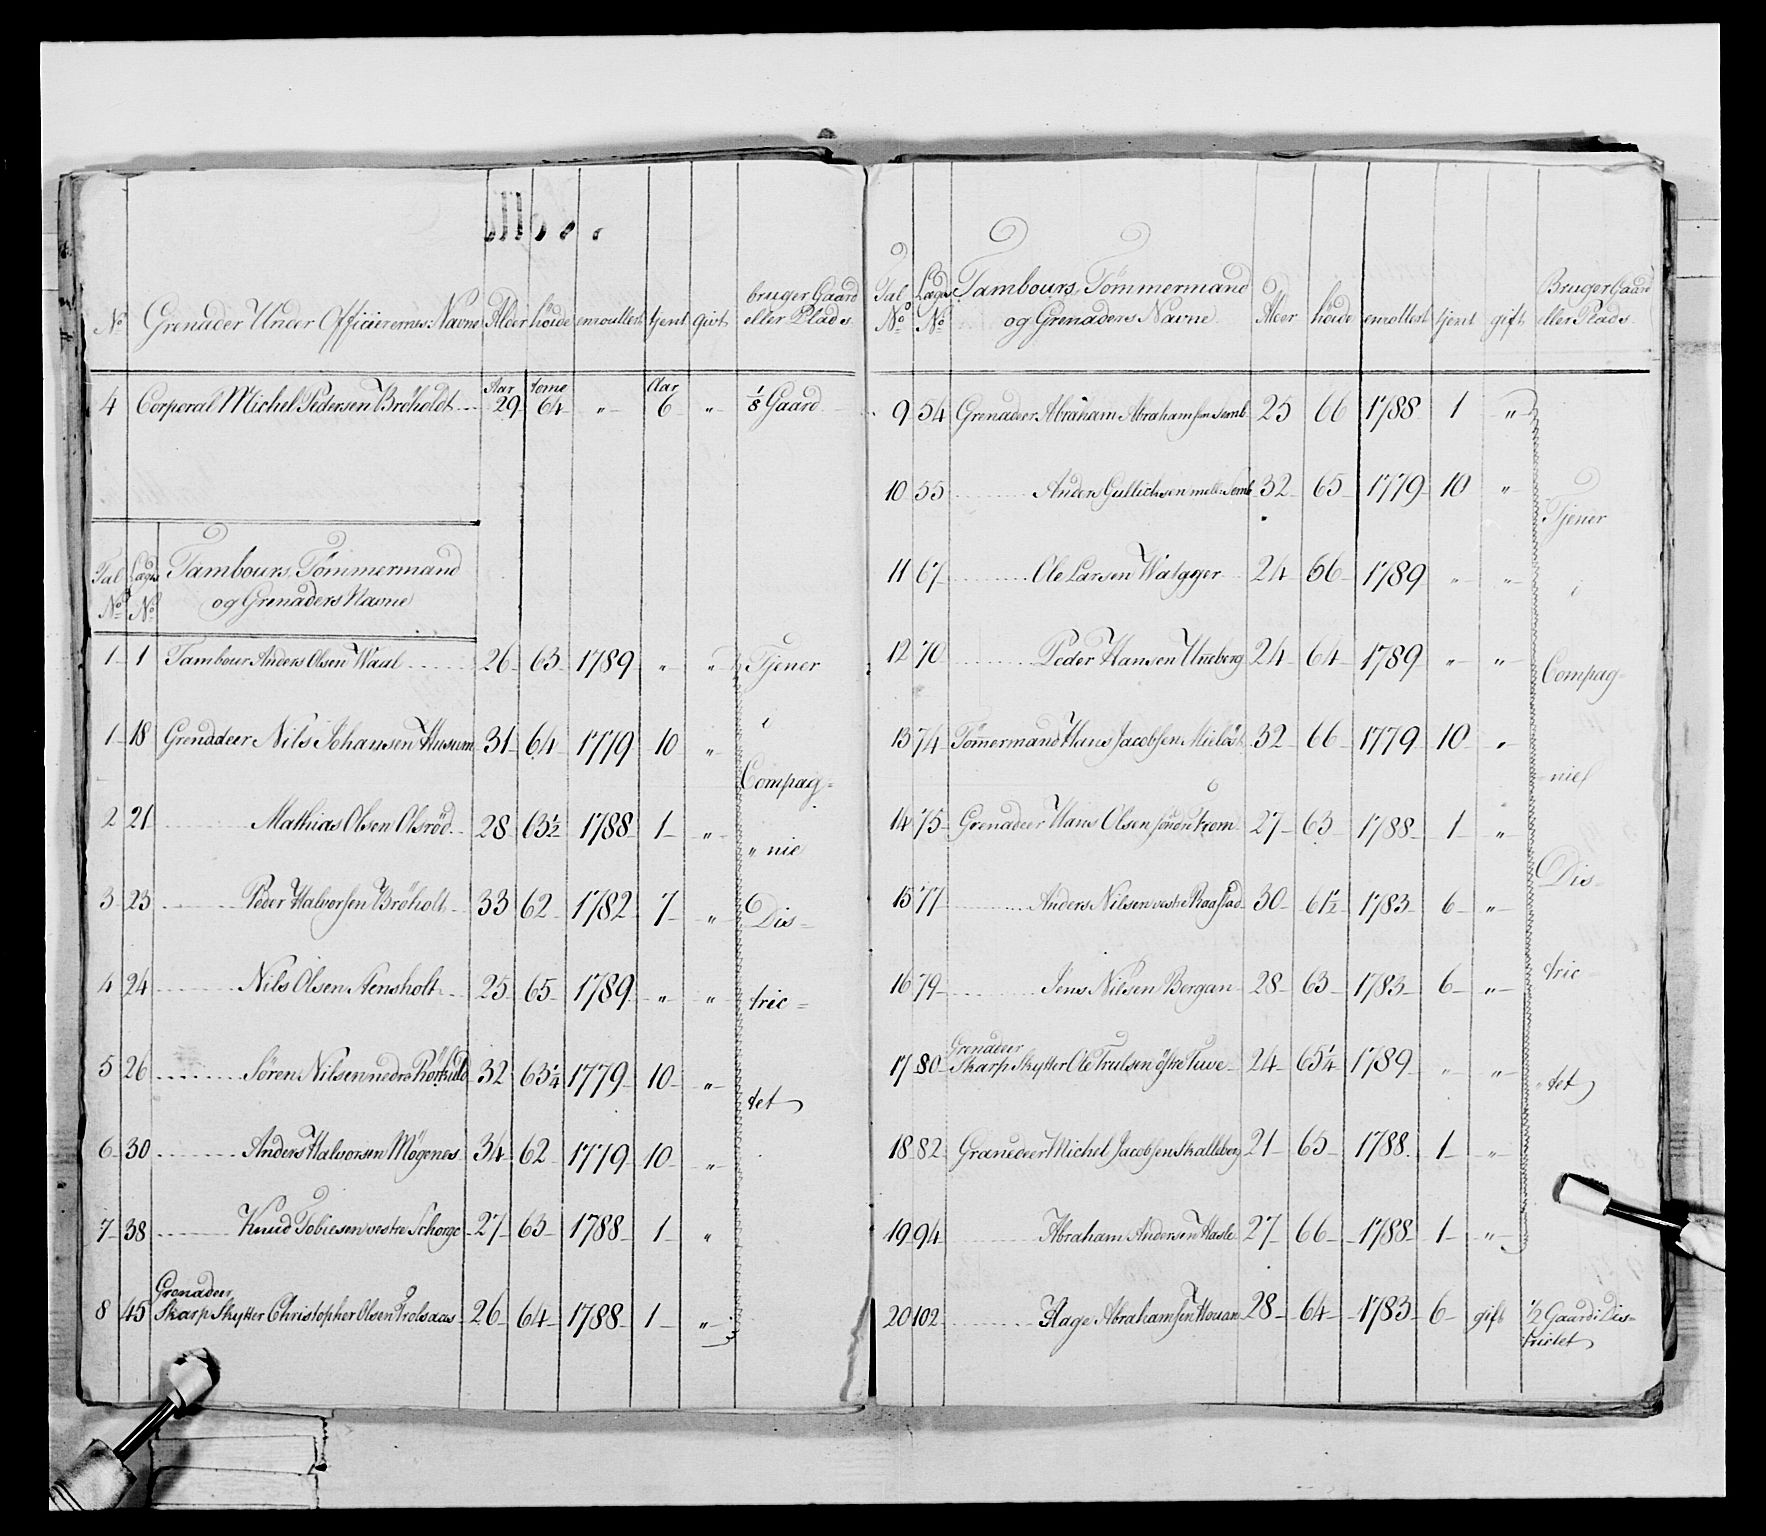 No Grenadeer Under Officeirernes Navne Alder höide enroullert tjent givt bruger Gaard
eller Plads
Aar tome Aar
4 Corporal Michel Pedersen Bröholdt 29 64 " 6 " 1/8 Gaard
Tal Lægd Tambours, Tömmermand
No No og Grenadeers Navne
1 1 Tambour Anders Olsen Waal 26 63 1789 " " Tjener
1 18 Grenadeer Nils Johansen Husum 31 64 1779 10 " i
Compag=
2 21 Mathias Olsen Olsröd 28 63 1/2 1788 1 "
" nie
3 23 Peder Halvorsen Bröholt 33 62 1782 7 " Dis=
4 24 Nils Olsen Aensholt 25 65 1789 " " tric=
5 26 Sören Nilsen nedre Rörkuld 32 63 1/4 1779 10 "
tet
6 30 Anders Halvorsen Mögenes 34 62 1779 10 "
7 38 Knud Tobiesen vestre Schorge 27 63 1788 1 "
Grenadeer
8 45 Skarp Skytter Christopher Olsen Trolsaas 26 64 1788 1 "
Tal Lægd Tambours, Tömmermand Alder höide enrollert tjent gift Bruger Gaard
No No og Grenadeers Navne eller Plads
9 54 Grenadeer Abraham Abrahamsen Semb 25 66 1788 1 "
10 55 Anders Gullichsen melle Semb 32 65 1779 10 "
Tjener
11 67 Ole Larsen Walgger 24 66 1789 " "
i
12 70 Peder Hansen Unneberg 24 64 1789 " "
Compag=
13 74 Tömmermand Hans Jacobsen Mielöst 32 66 1779 10 "
niet
14 75 Grenadeer Hans Olsen söndre From 27 63 1788 1 "
Dis=
15 77 Anders Nilsen vestre Raastad 30 61 1/2 1783 6 "
16 79 Jens Nilsen Bergan 28 63 1783 6 " tric
Grenadeer
17 80 Skarp Skytter Ole Trulsen östre Tuve 24 65 1/4 1789 " " tet
18 82 Granedeer Michel Jacobsen Skallberg 21 65 1788 1 "
19 94 Abraham Andersen Hasle 27 66 1788 1 "
20 102 Hage Abrahamsen Houan 28 64 1783 6 gift 1/2 Gaard i Dis=
trictet